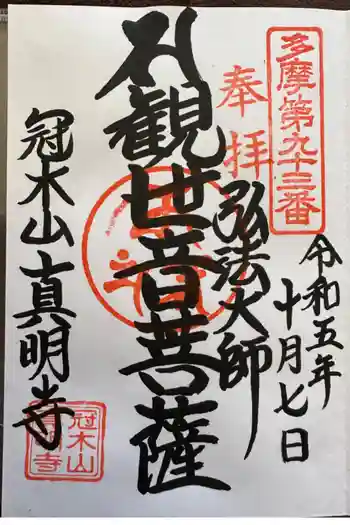 多摩第九十三番
令和五年
十月七日
奉拝
弘法大師
聖観世音菩薩
冠木山真明寺
冠木山
真明寺